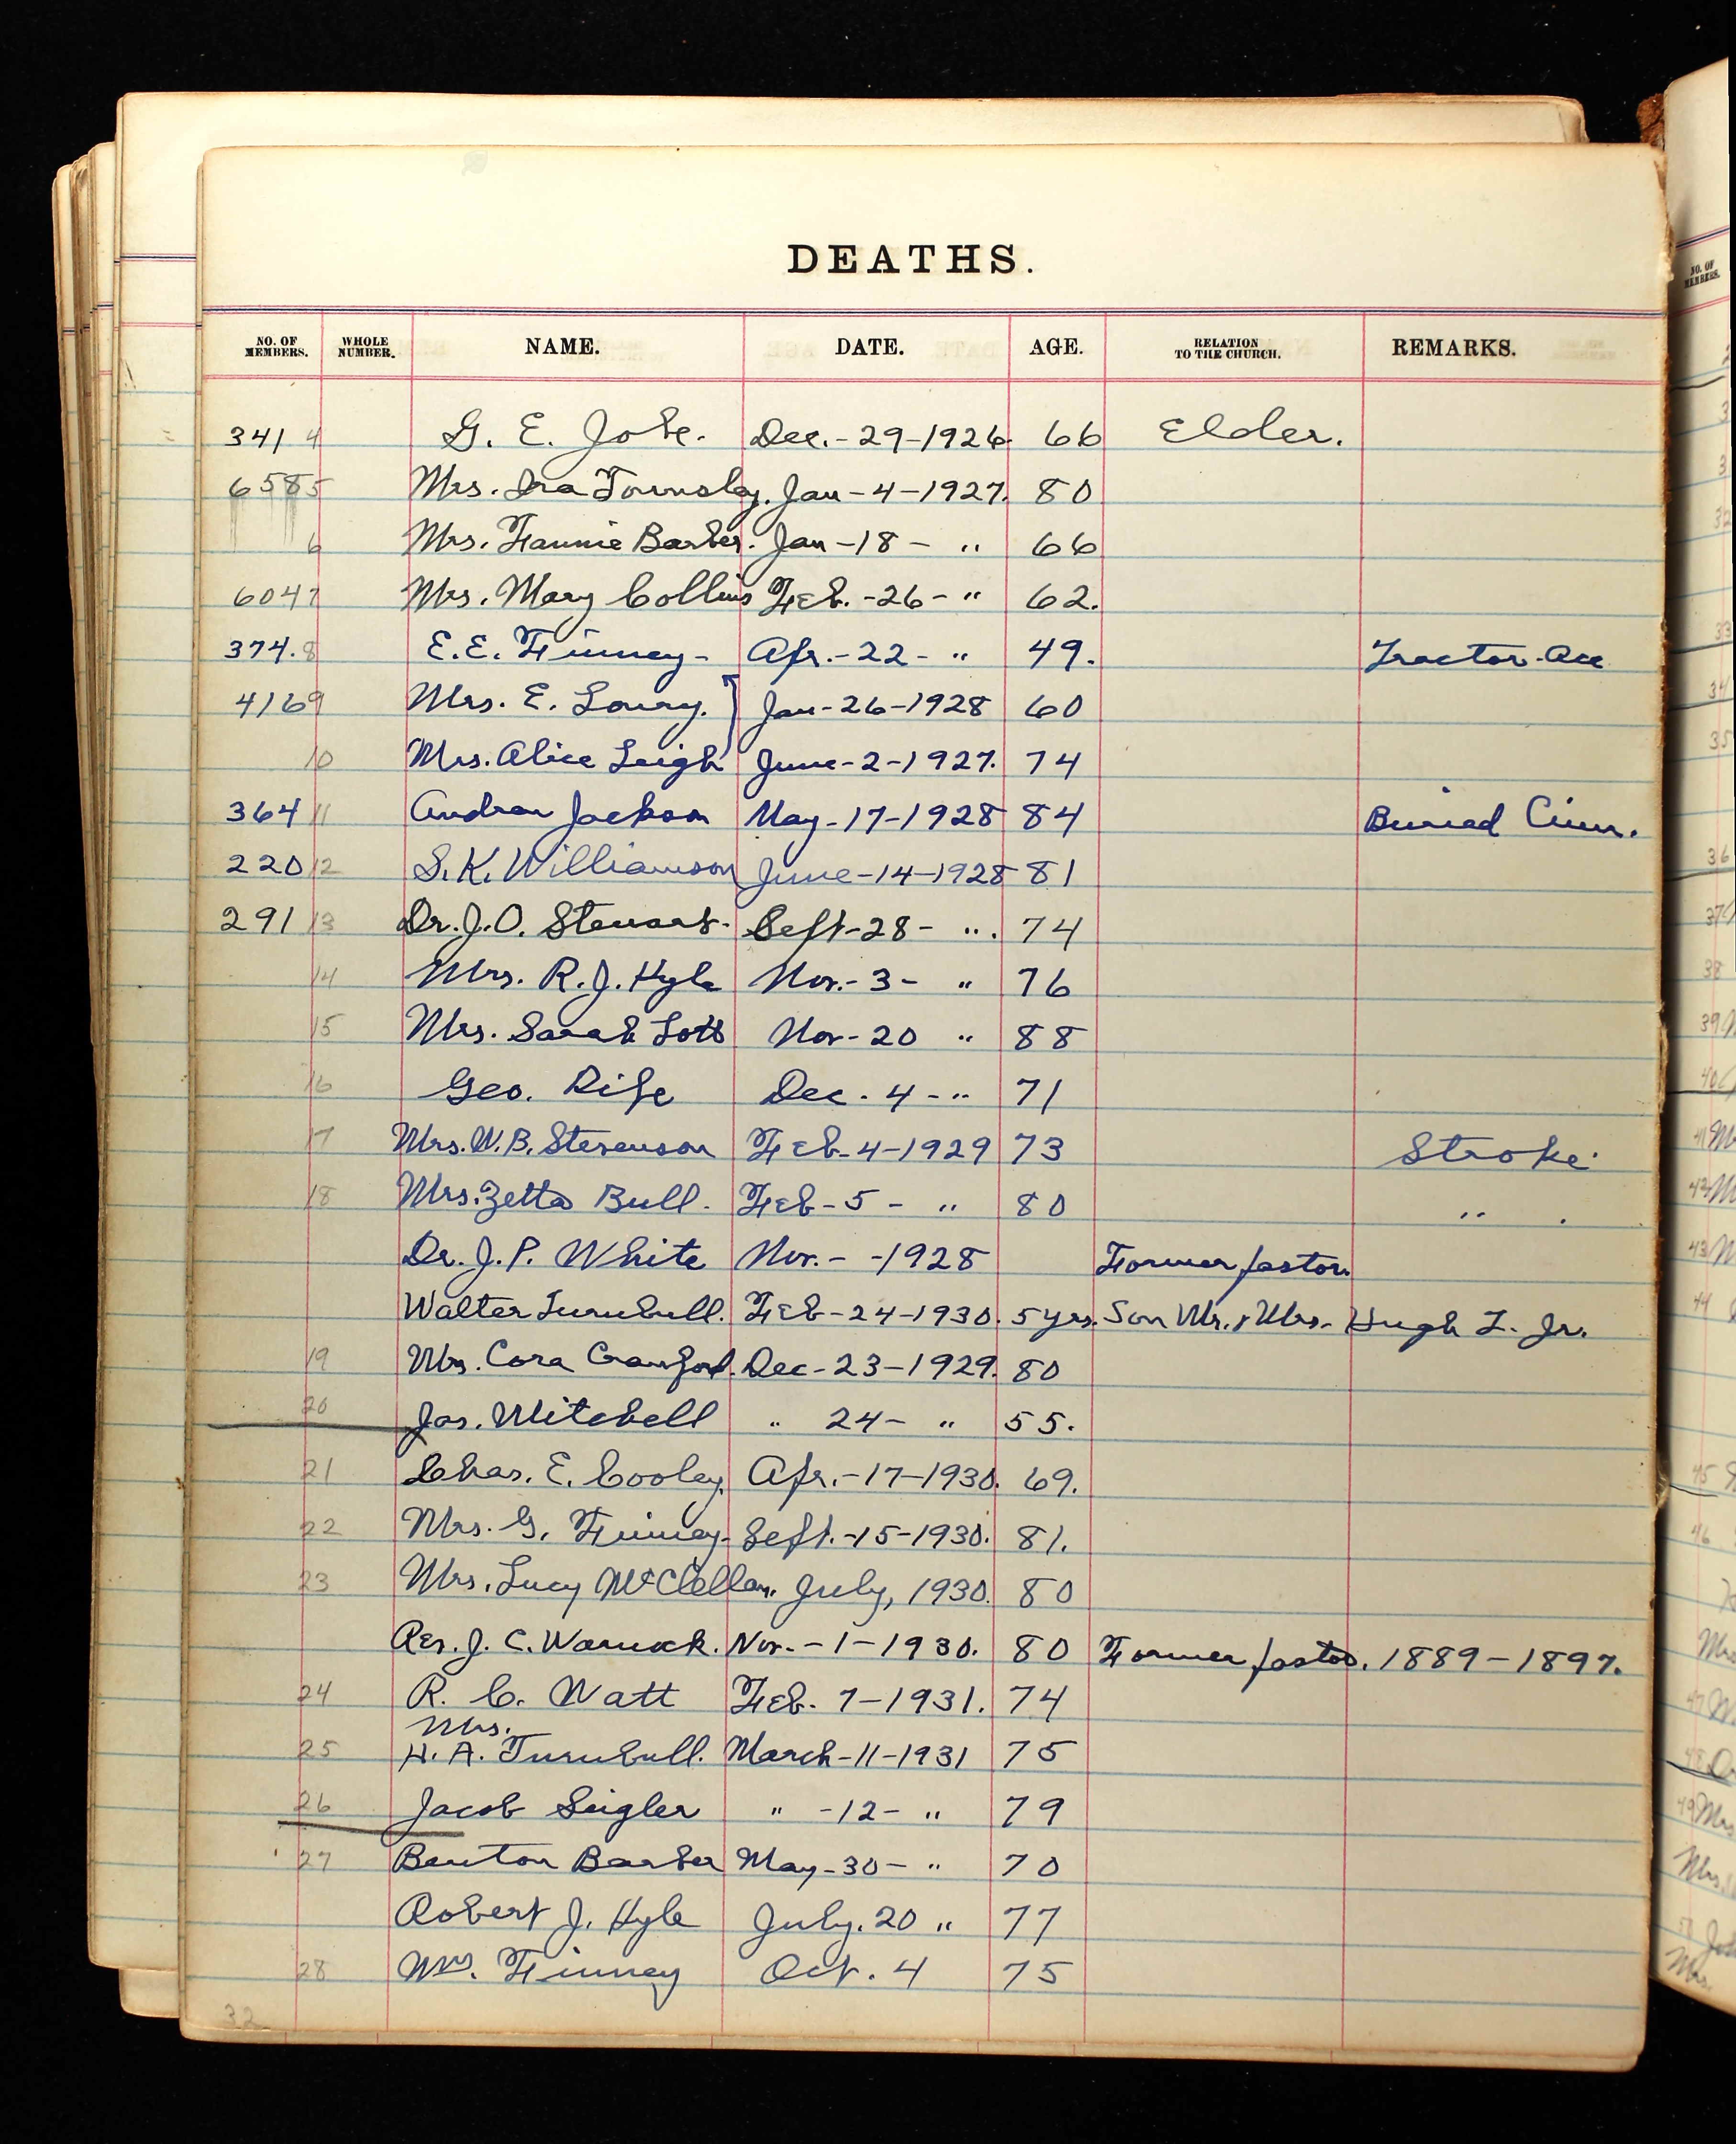 DEATHS.
NO. OF MEMBERS. WHOLE NUMBER. NAME. DATE. AGE. RELATION TO THE CHURCH. REMARKS.
341 4 G. E. Jobe. Dec.-29-1926 66 Elder.
658 5 Mrs. Ira Townsley. Jan-4-1927. 80
6 Mrs. Fannie Barber. Jan-18- " 66
604 7 Mrs. Mary Collins Feb.-26- " 62.
374. 8 E.E. Finney- Apr.-22- " 49. Tractor-Acc
416 9 Mrs. E. Lowry. Jan-26-1928 60
10 Mrs. Alice Leigh June-2-1927. 74
364 11 Andrew Jackson May-17-1928 84 Buried Cinn.
220 12 S.K. Williamson June-14-1928 81
291 13 Dr. J.O. Stewart- Sept-28- ". 74
14 Mrs. R.J. Kyle Nov.-3- " 76
15 Mrs. Sarah Lott Nov-20 " 88
16 Geo. Rife Dec. 4- " 71
17 Mrs. W.B. Stevenson Feb-4-1929 73 Stroke
18 Mrs. Zetta Bull. Feb-5- " 80 "
Dr. J.P. White Nov.- -1928 Former pastor
Walter Turnbull. Feb-24-1930. 5 yrs. Son Mr. & Mrs. Hugh T. Jr.
19 Mrs. Cora Crawford. Dec-23-1929. 80
20 Jas. Mitchell " 24- " 55.
21 Chas. E. Cooley. Apr.-17-1930. 69.
22 Mrs. G. Finney- Sept.-15-1930. 81.
23 Mrs. Lucy McClellan. July, 1930. 80
Rev. J. C. Warnock. Nov.-1-1930. 80 Former pastor. 1889-1897.
24 R. C. Watt Feb. 7-1931. 74
Mrs.
25 H. A. Turnbull. March-11-1931 75
26 Jacob Seigler " -12- " 79
27 Benton Barber May-30- " 70
Robert J. Kyle July. 20 " 77
28 Mrs. Finney Oct. 4 75
32
NO. OF MEMBERS.